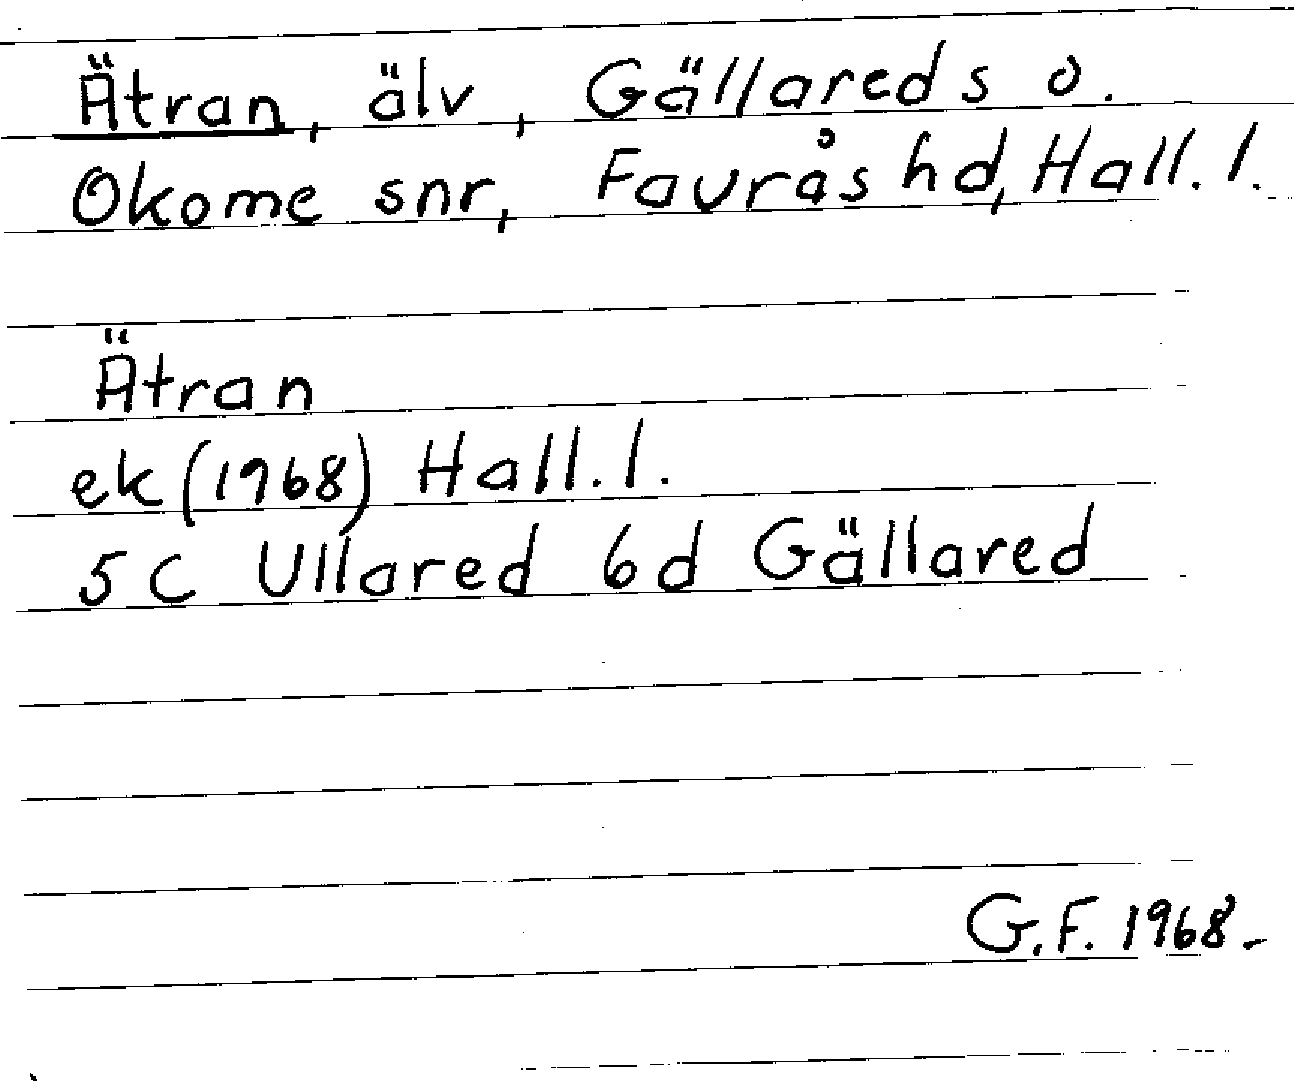 Ätran, älv, Gällareds o.
Okome snr, Faurås hd, Hall. l.
Ätran
ek (1968) Hall. l.
5 C Ullared 6 d Gällared
G. F. 1968.